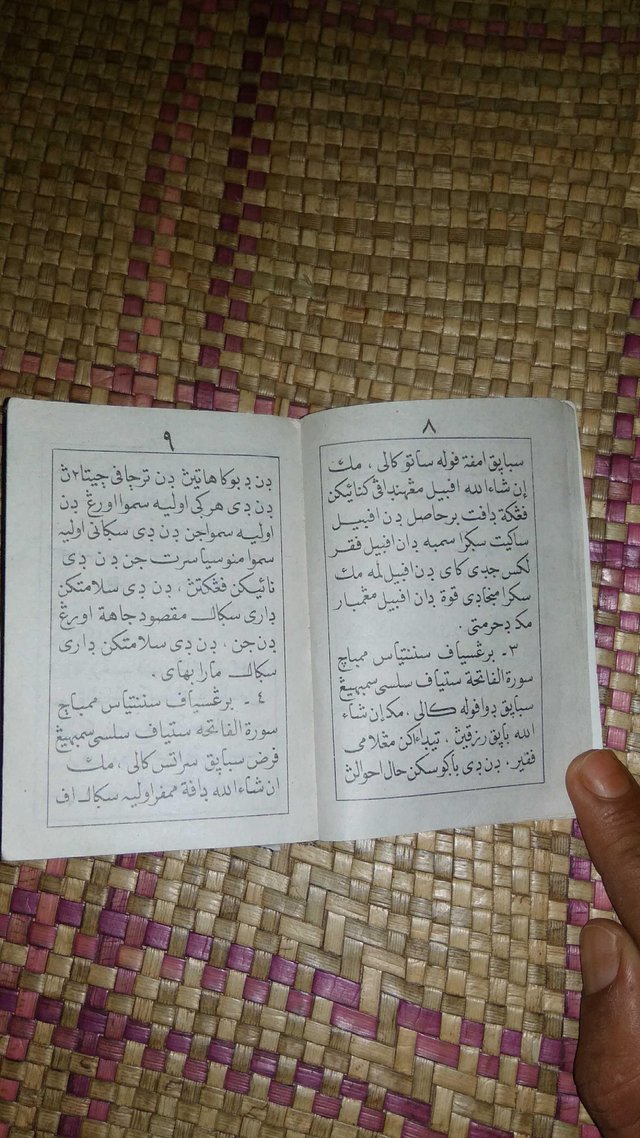 ٨
سباپق امفة فوله ساتو كالي ، مك
إن شاء الله افبيل مڠهندافي كنائيكن
فڠكة داڤت برحاصل دن افبيل
ساكيت سݢرا سمبه دان افبيل فقر
لكس جدي كاي دن افبيل لمه مك
سݢرا منجادي قوة دان افبيل مڠمبار
مك دحرمتي .
٣ - برڠسياف سننتياس ممباچ
سورة الفاتحة ستياف سلسي سمبهيڠ
سباپق دوافوله كالي . مك ان شاء
الله باپق رزقيڽ ، تيداءكن مڠلامي
فقير . دن دي باݢوسكن حال احوالڽ
٩
دن دبوكا هاتيڽ دن ترچافي چيتا٢ڽ
دن دي هرݢي اوليه سموا اورڠ دن
اوليه سمواجن دن دي سݢاني اوليه
سموا منوسيا سرت جن دن دي
نائيكن فڠكتڽ ، دن دي سلامتكن
داري سݢال مقصود جاهة اورڠ
دن جن ، دن دي سلامتكن داري
سݢال مارا بهاي .
٤ - برڠسياف سننتياس ممباچ
سورة الفاتحه ستياف سلسي سمبهيڠ
فرض سباپق سراتس كالي ، مك
ان شاء الله دافة ممفراوليه سݢال اف